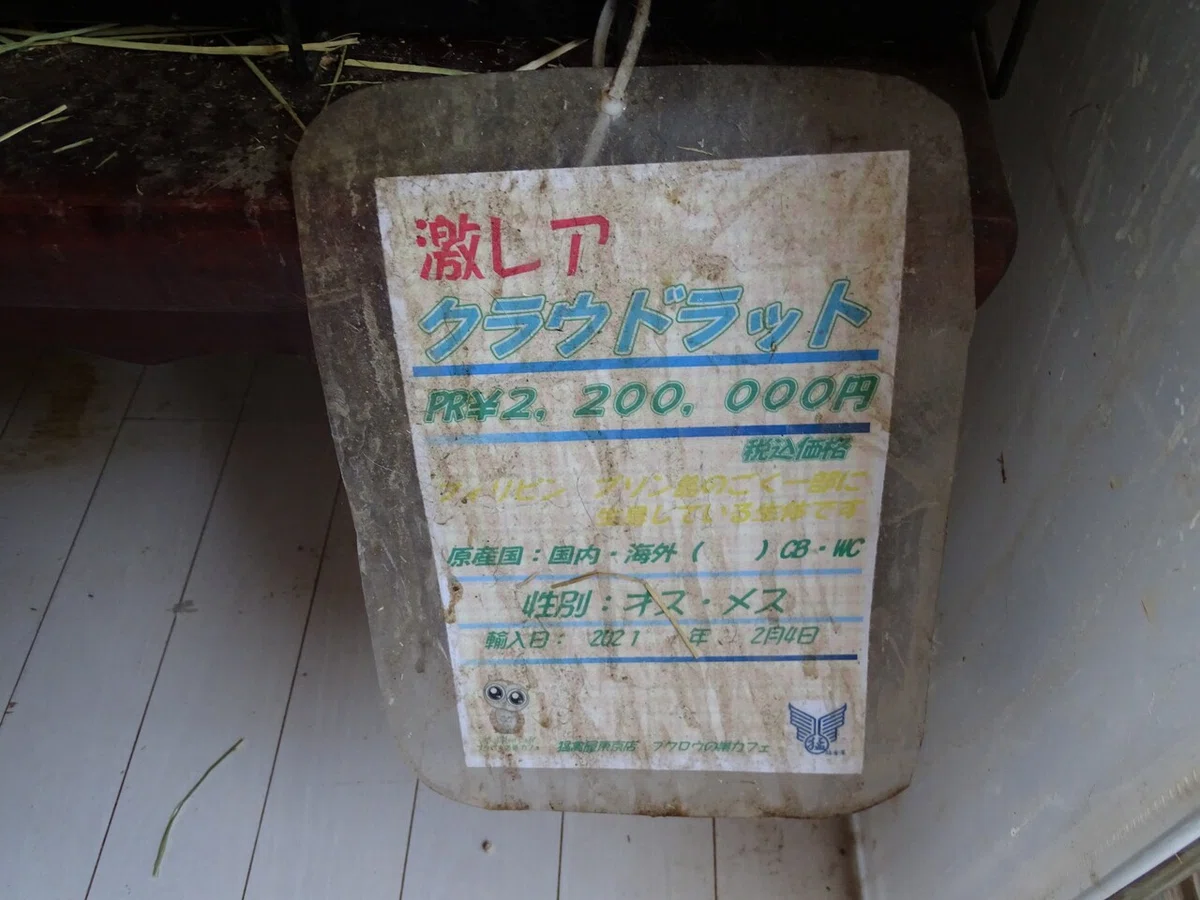 激レア
クラウドラット
PR¥2, 200, 000円
税込価格
フィリピン ルソン島のごく一部に
生息している生体です
原産国:国内・海外( )CB・WC
性別:オス・メス
輸入日: 2021 年 2月4日
猛禽屋東京店 フクロウの城カフェ
猛